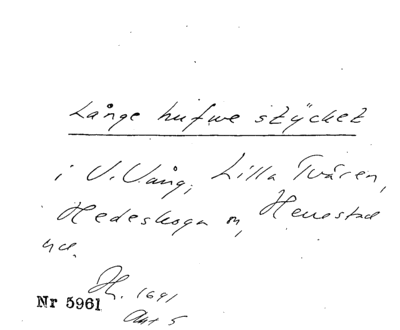 Långe hufwe stÿcket
i V. Vång, Lilla Tvären,
Hedeskoga o, Herrestad
hd.
H. 1691
Akt 5
Nr 5961